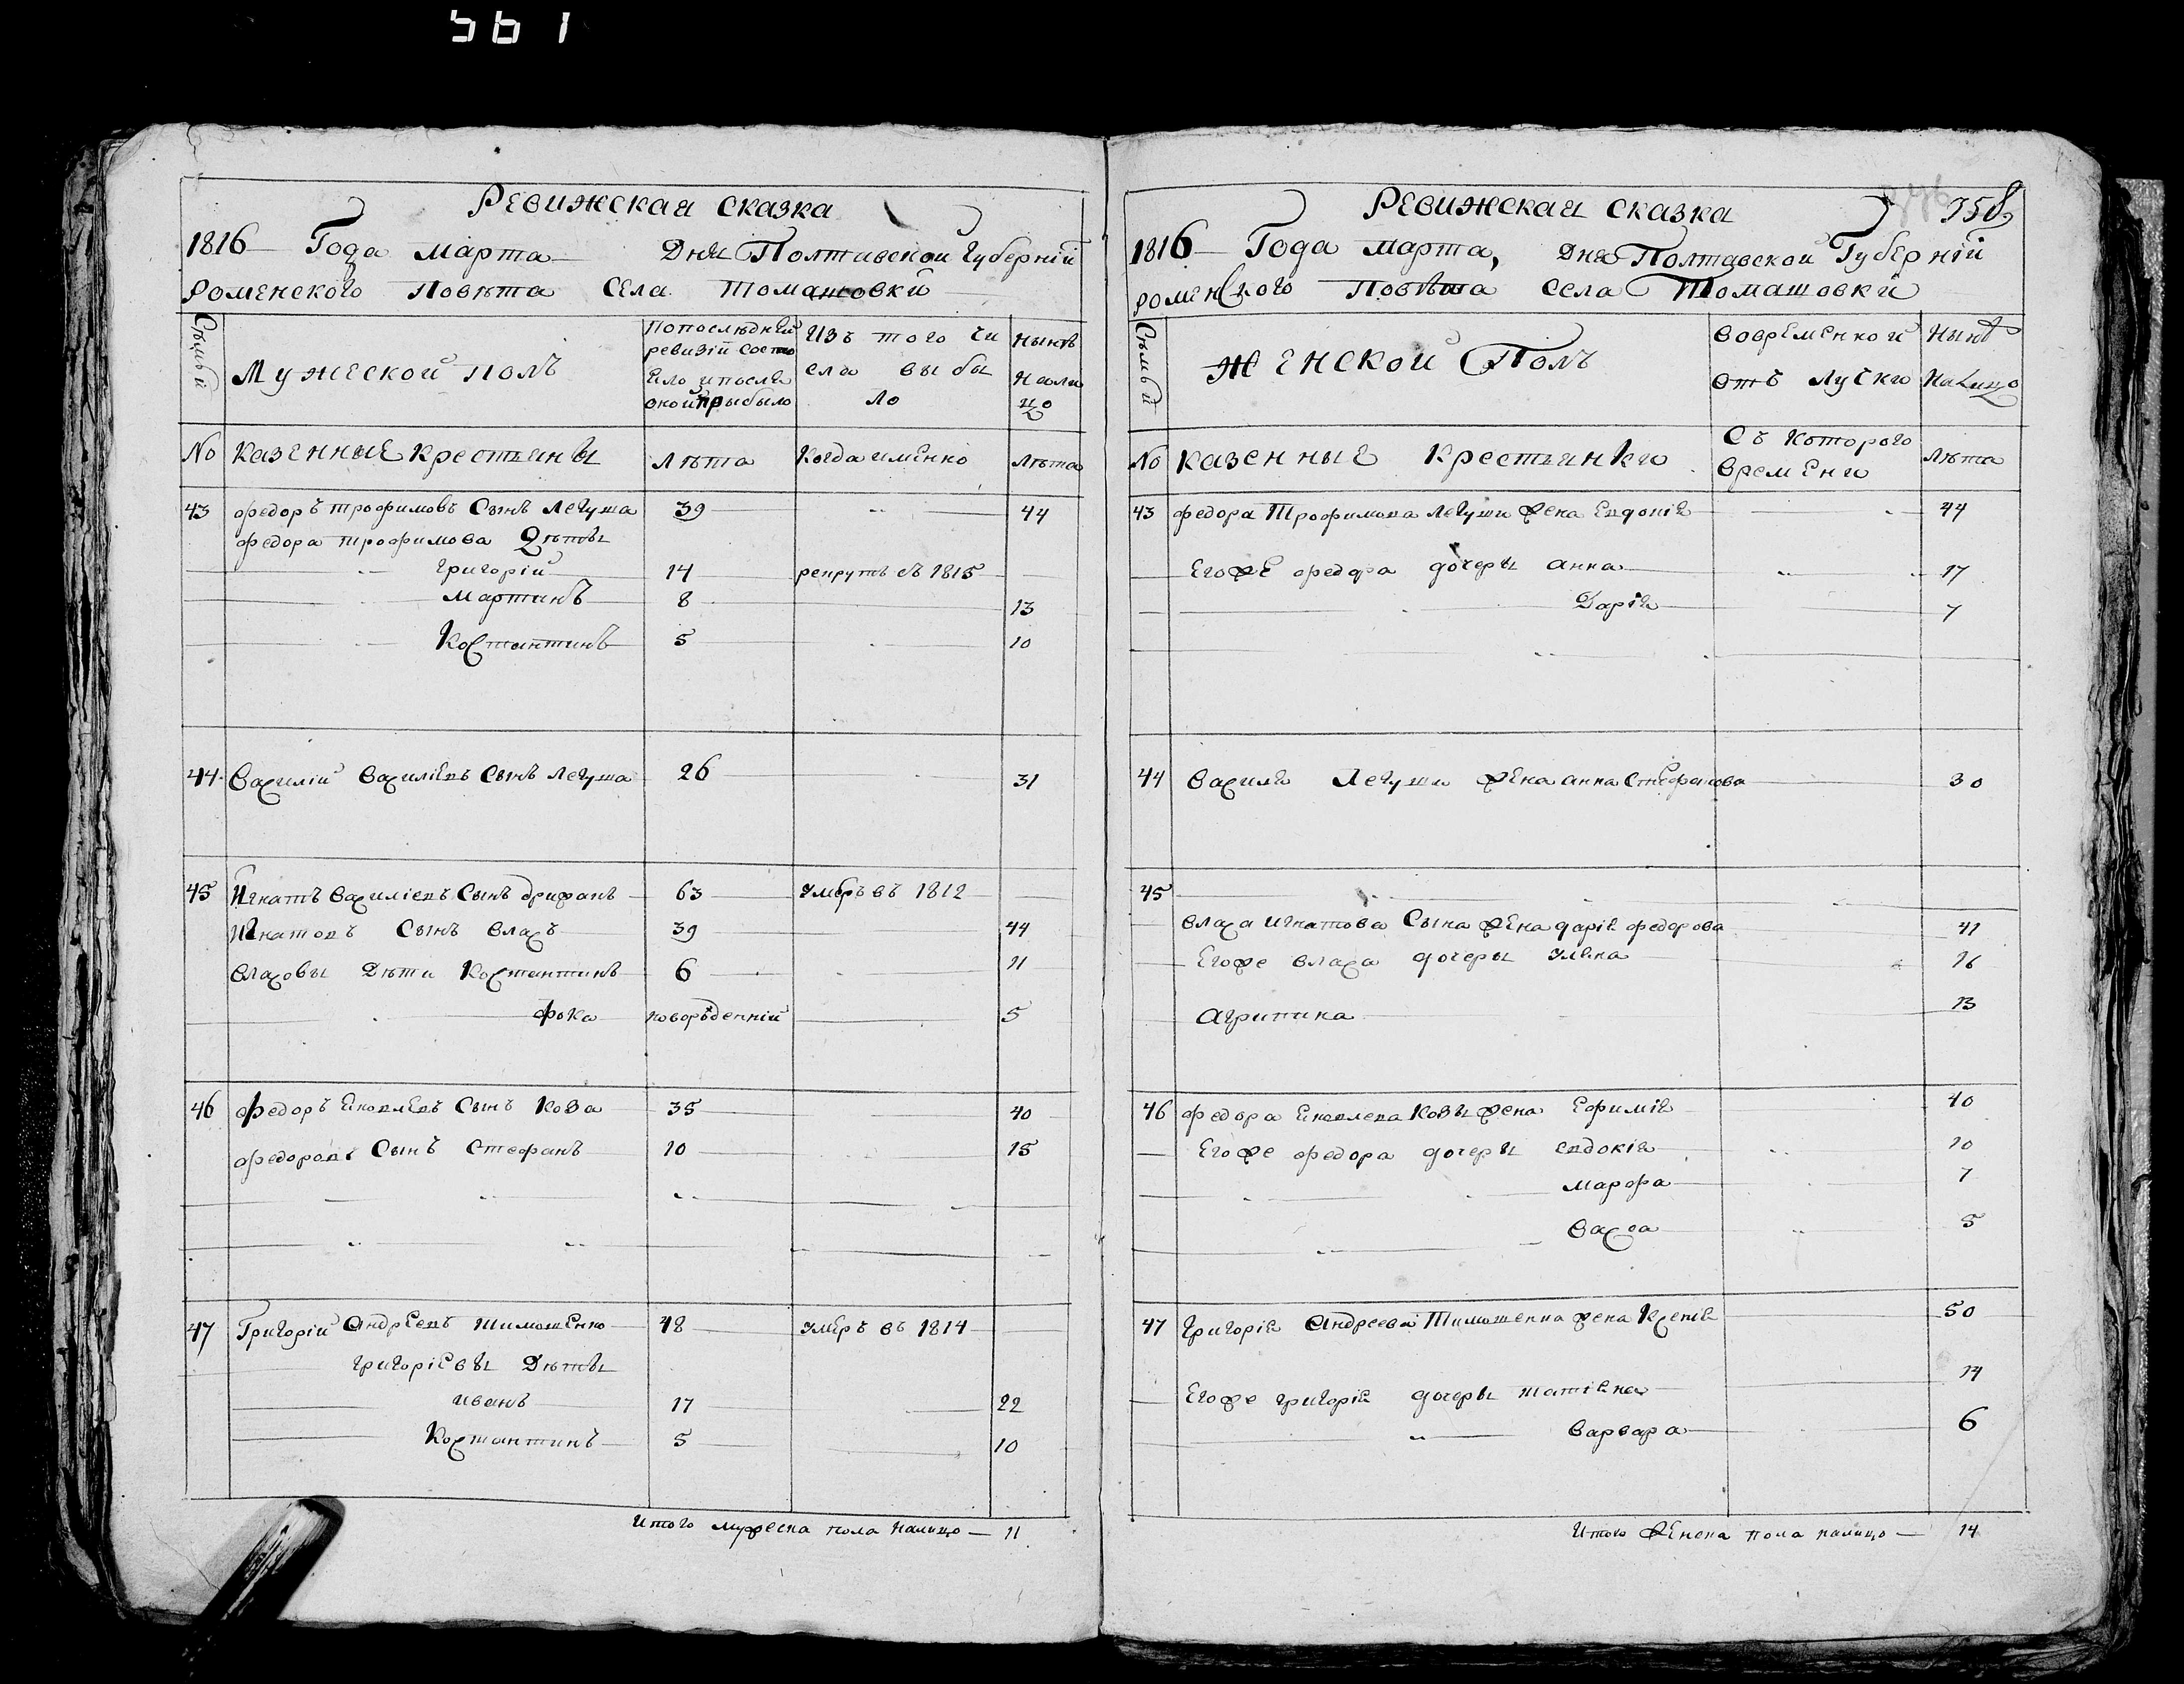 561
Ревижская сказка
1816 Года марта Дня Полтавской губерній
роменского повѣта села томашовки
Сѣмьи
Мужеской полъ
попослѣдней ревизій состояло и после оной прыбыло
изъ того числа выбыло
нынѣ налицо
No казенные крестьяны
лѣта
когда именно
лѣта
43 федоръ трофимовъ сынъ легуша 39 44
федора трофимова дѣты
григорій 14 рекрутъ въ 1815
мартинъ 8 13
костантинъ 5 10
44 василій василіевъ сынъ легуша 26 31
45 игнатъ василіевъ сынъ 63 умеръ въ 1812
игнатовъ сынъ власъ 39 44
власовы дѣти костантинъ 6 11
фока новорожденній 5
46 федоръ яковлевъ сынъ коза 35 40
федоровъ сынъ стефанъ 10 15
47 григорій андреевъ тимошенко 48 умеръ въ 1814
григоріевы дѣты
иванъ 17 22
костантинъ 5 10
итого мужеска пола налицо — 11
358
Ревижская сказка
1816 Года марта, дня Полтавской Губерній
роменского повѣта села Томашовки
Сѣмьи
Женской Полъ
вовременной отълучки
нынѣ налицо
No казенные крестьянки
съ которого времени
лѣта
43 федора Трофимова легуши жена евдокія 44
егоже федора дочеры анна 17
дарія 7
44 василя легуши жена анна стефанова 30
45
власа игнатова сына жена дарія федорова 41
егоже власа дочеры уляна 16
агрипина 13
46 федора яковлева козы жена ефимія 40
егоже федора дочеры евдокія 10
марфа 7
васса 5
47 григорія андреева Тимошенка жена ксенія 50
егоже григорія дочеры татіяна 14
варвара 6
итого женска пола налицо — 14